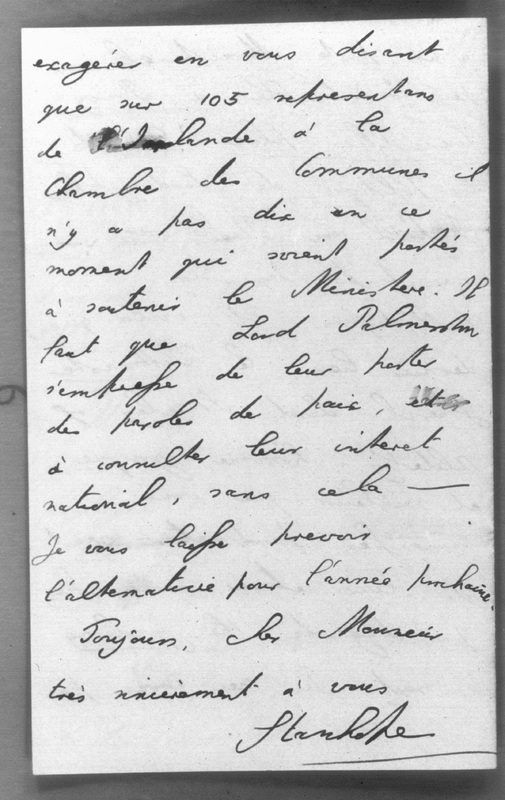 exagérer en vous disant
que sur 105 representans
de l'Irlande à la
Chambre des Communes il
n'y a pas dix en ce
moment qui soient portés
à soutenir le Ministère. Il
faut que Lord Palmerston
s'empresse de leur porter
des paroles de paix, et
à consulter leur interet
national, sans cela —
Je vous laisse prevoir
l'alternative pour l'année prochaine.
Toujours, cher Monsieur
très sincèrement à vous
Stanhope